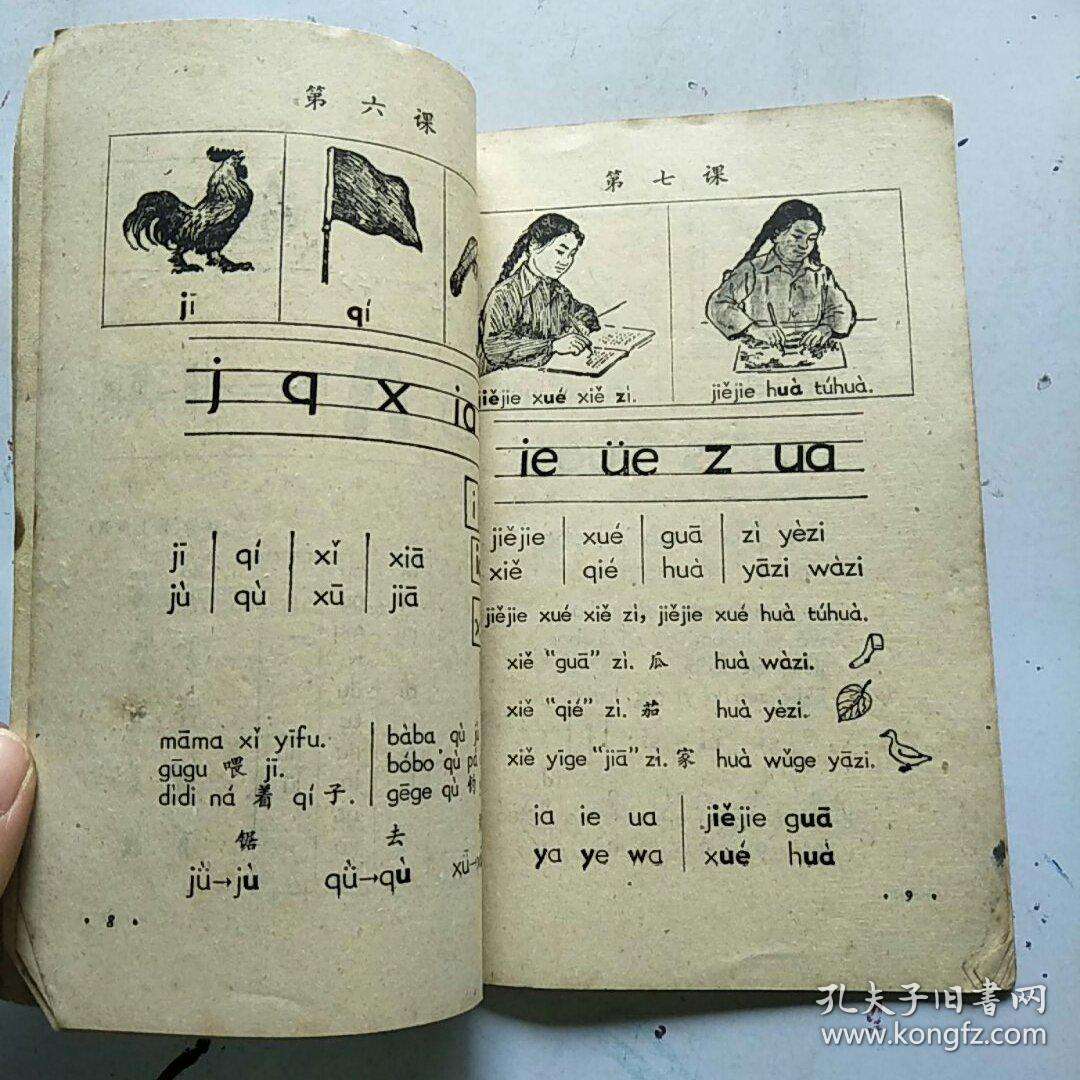 第六课
jī qí
j q x ia
jī qí xǐ xiā
jù qù xū jiā
māma xǐ yīfu.
gūgu 喂 jī.
dìdi ná 着 qí 子.
bàba qù
bóbo qù
gēge qù
锯 去
jǜ→jù qǜ→qù xū→
·8·
第七课
jiějie xué xiě zì. jiějie huà túhuà.
ie üe z ua
jiějie xué guā zì yèzi
xiě qié huà yāzi wàzi
jiějie xué xiě zì, jiějie xué huà túhuà.
xiě "guā" zì. 瓜 huà wàzi.
xiě "qié" zì. 茄 huà yèzi.
xiě yīge "jiā" zì. 家 huà wǔge yāzi.
ia ie ua jiějie guā
ya ye wa xué huà
·9·
孔夫子旧书网
www.kongfz.com